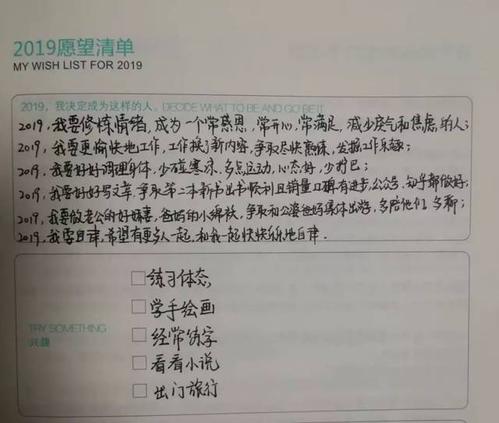 2019愿望清单
MY WISH LIST FOR 2019
2019，我决定成为这样的人。DECIDE WHAT TO BE AND GO BE IT
2019，我要修炼情绪，成为一个常感恩，常开心，常满足，减少戾气和焦虑的人；
2019，我要更愉快地工作，工作换了新内容，争取尽快熟练，发掘工作乐趣；
2019，我要好好调理身体，少碰寒凉，多点运动，心态好，少打巴；
2019，我要好好写文章，争取第二本新书出书顺利且销量口碑有进步，公众号，知乎都做好；
2019，我要做老公的好妻，爸妈的小棉袄，争取和公婆爸妈集体出游，多陪他们，多聊；
2019，我要自律，希望有更多人一起，和我一起快快乐乐地自律．
TRY SOMETHING
兴趣
练习体态
学手绘画
经常练字
看看小说
出门旅行